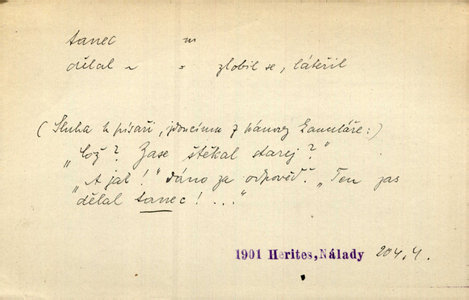 tanec m
dělal ~ " zlobil se, láteřil
(Sluha k písaři, jdoucímu z pánovy kanceláře:)
„Což? Zase štěkal starej?"
„A jak!" dáno za odpověď. „Ten zas
dělal tanec! ..."
1901 Herites, Nálady 204,4.